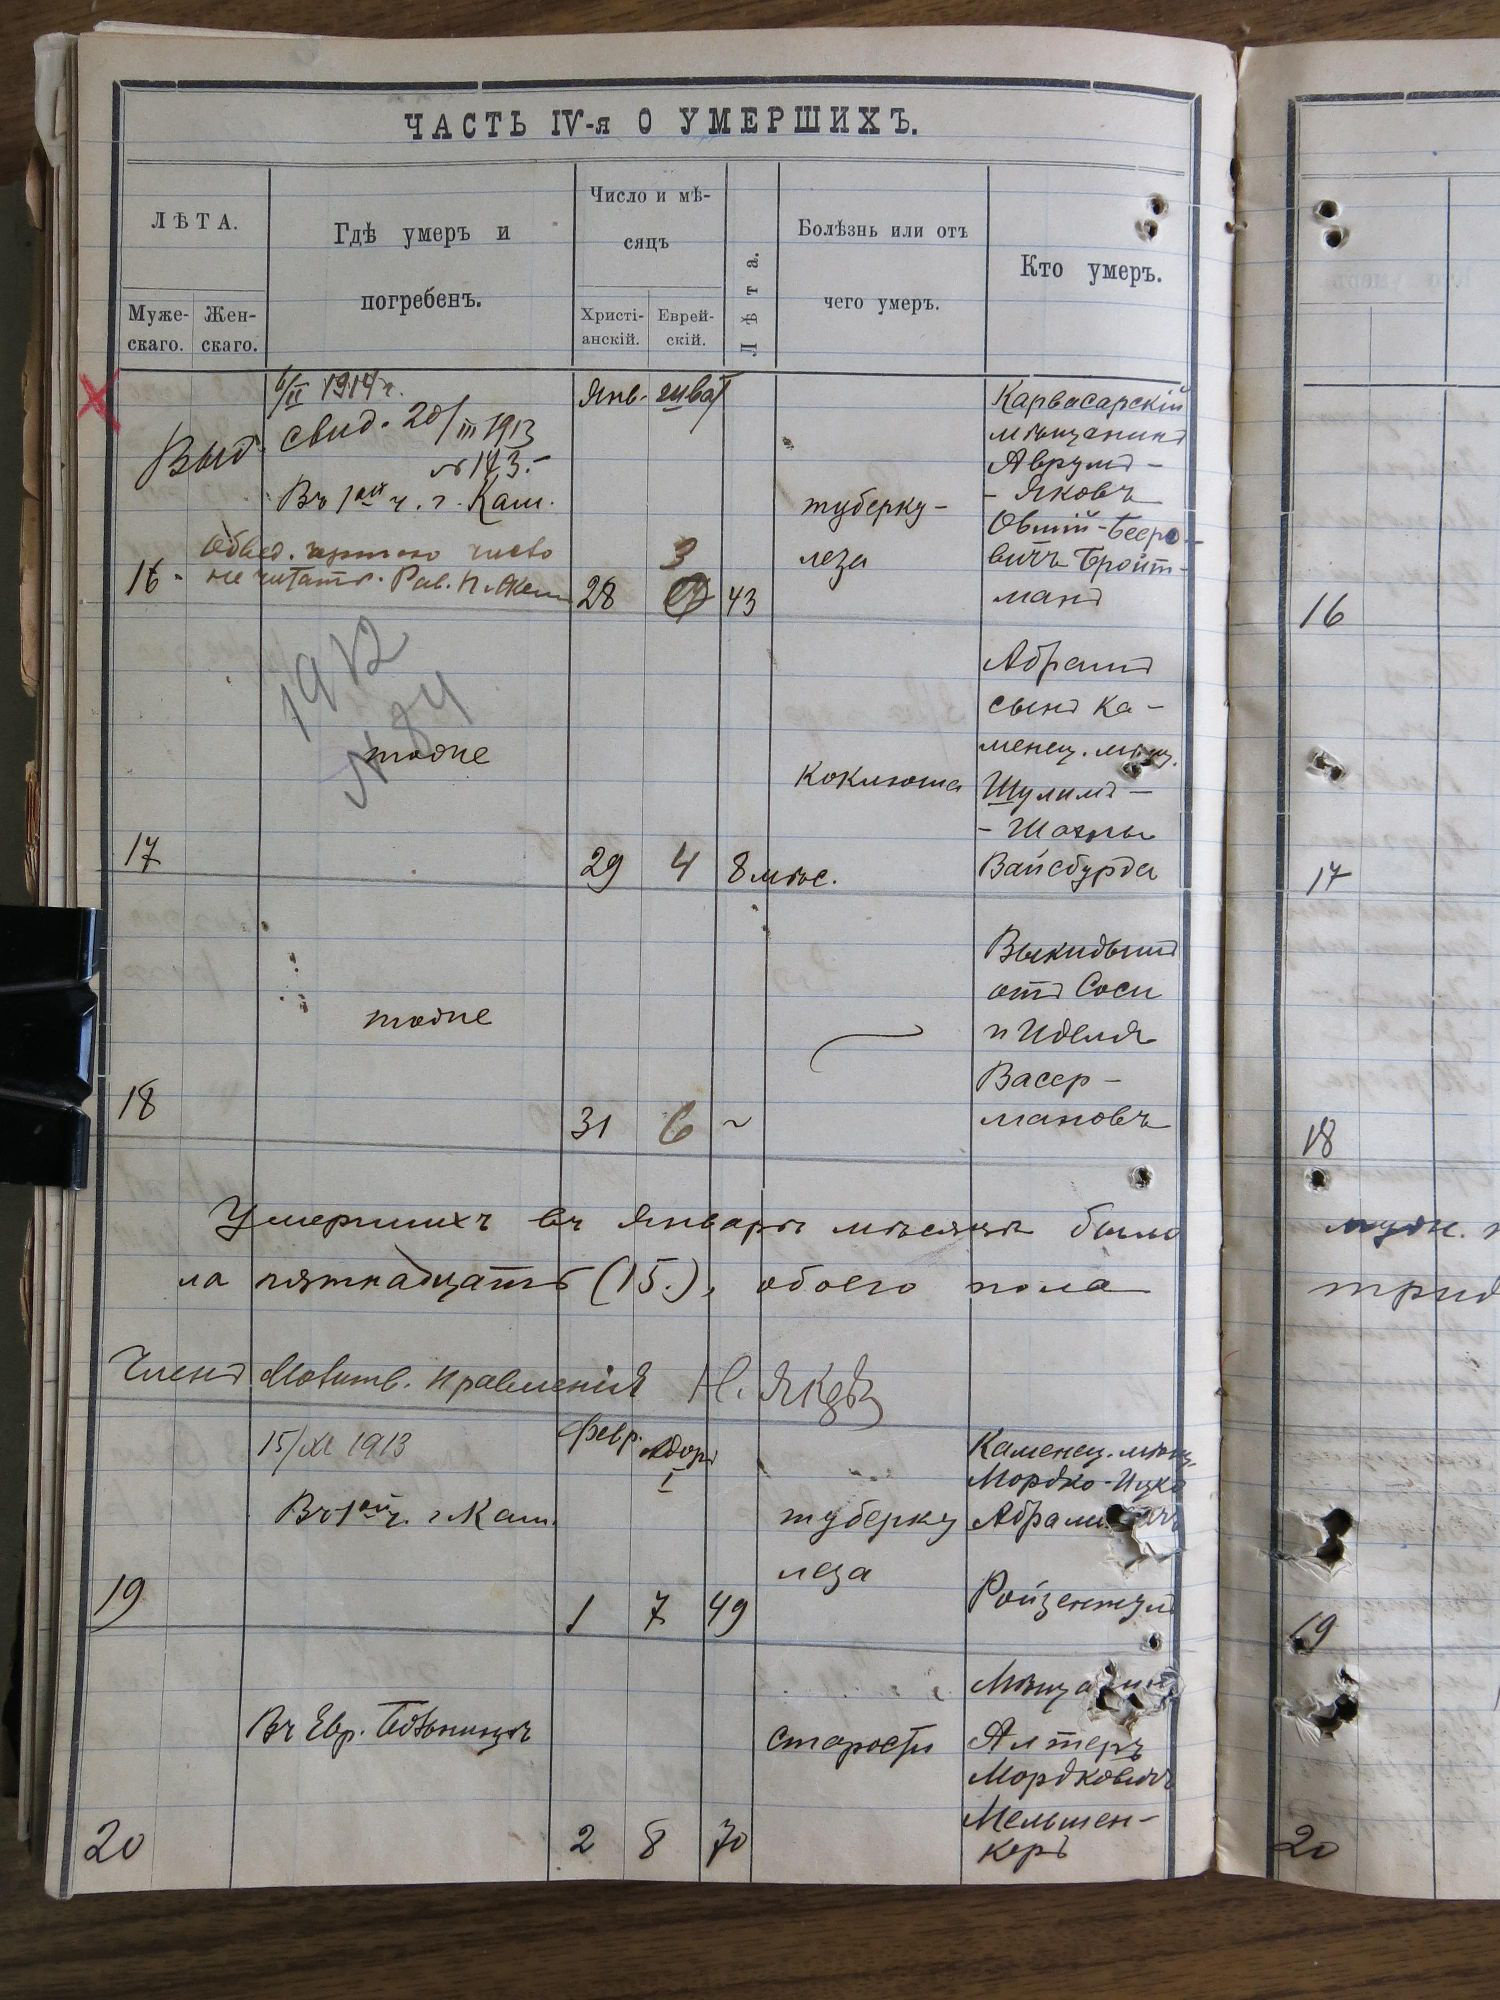 ЧАСТЬ IV-я О УМЕРШИХЪ.
ЛѢТА.
Муже-
скаго.
Жен-
скаго.
Гдѣ умеръ и
погребенъ.
Число и мѣ-
сяцъ
Христі-
анскій.
Еврей-
скій.
Лѣта.
Болѣзнь или отъ
чего умеръ.
Кто умеръ.
6/II 1914 г.
Выд. свид. 20/III 1913
№ 143.-
Въ 1ой ч. г. Кам.
не читать. Рав.
16.
Янв.
28
Шват
3
43
туберку-
леза
Карвасарскій
мѣщанинъ
Аврумъ-
- Яковъ
Овшій-Беро-
вичъ Бройт-
манъ
16
1912
N 84
тоже
17
29
4
8 мѣс.
коклюша
Абрамъ
сынъ Ка-
менец. мѣщ.
Шулимъ-
- Шахны
Вайсбурда
17
тоже
18
31
6
~
Выкидышъ
отъ Соси
и Иделя
Васер-
мановъ
18
Умершихъ въ Январѣ мѣсяцѣ было
ла пятнадцать (15.), обоего пола
муж.
трид
Членъ Молитв. Правленія
15/XI 1913
Въ 1ой ч. г. Кам.
19
Февр.
1
Адоръ
I
7
49
туберку
леза
Каменец. мѣщ.
Мордко-Ицко
Ройзентул
19
Въ Евр. Больницѣ
20
2
8
70
старости
Алтеръ
Мордковичъ
Мельшен-
керъ
20